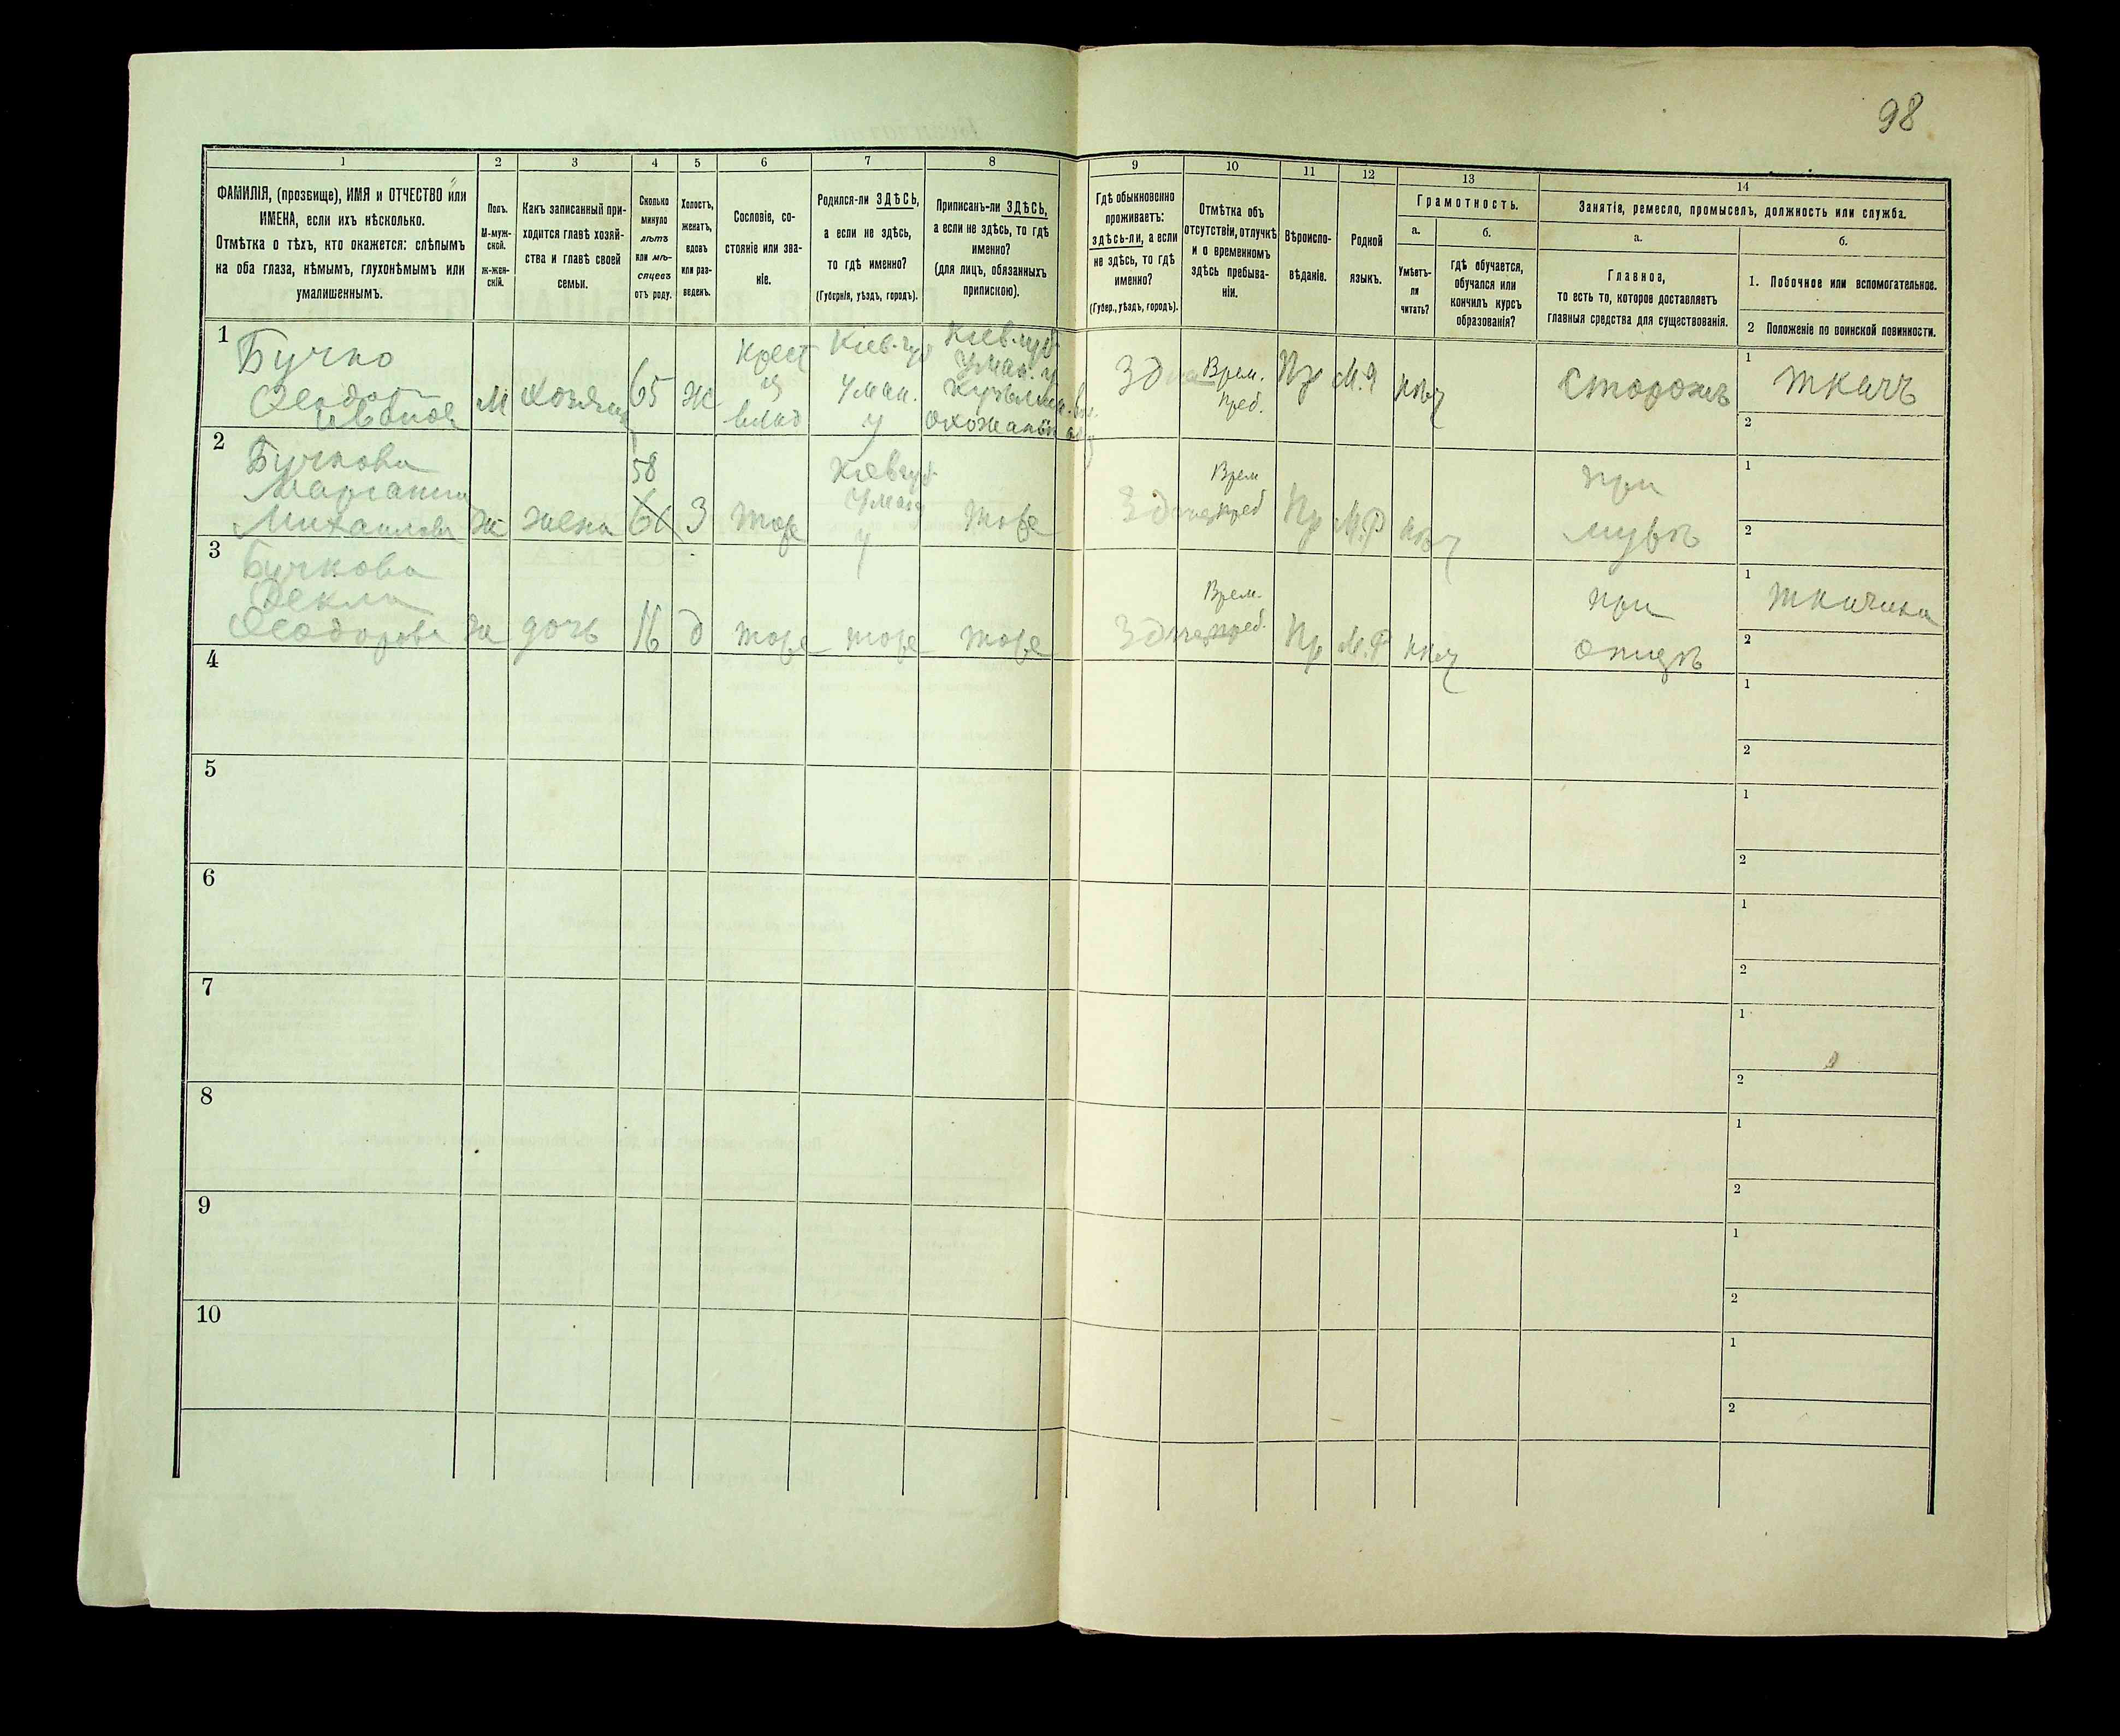 98
1
2
3
4
5
6
7
8
9
10
11
12
13
14
ФАМИЛІЯ, (прозвище), ИМЯ и ОТЧЕСТВО или
ИМЕНА, если ихъ нѣсколько.
Отмѣтка о тѣхъ, кто окажется: слѣпымъ
на оба глаза, нѣмымъ, глухонѣмымъ или
умалишеннымъ.
Полъ.
М-муж-
ской.
ж-жен-
скій.
Какъ записанный при-
ходится главѣ хозяй-
ства и главѣ своей
семьи.
Сколько
минуло
лѣтъ
или мѣ-
сяцевъ
отъ роду.
Холостъ,
женатъ,
вдовъ
или раз-
веденъ.
Сословіе, со-
стояніе или зва-
ніе.
Родился-ли ЗДѢСЬ,
а если не здѣсь,
то гдѣ именно?
(Губернія, уѣздъ, городъ).
Приписанъ-ли ЗДѢСЬ,
а если не здѣсь, то гдѣ
именно?
(для лицъ, обязанныхъ
припискою).
Гдѣ обыкновенно
проживаетъ:
здѣсь-ли, а если
не здѣсь, то гдѣ
именно?
(Губер., уѣздъ, городъ).
Отмѣтка объ
отсутствіи, отлучкѣ
и о временномъ
здѣсь пребыва-
ніи.
Вѣроиспо-
вѣданіе.
Родной
языкъ.
Грамотность.
а.
Умѣетъ-
ли
читать?
б.
гдѣ обучается,
обучался или
кончилъ курсъ
образованія?
Занятія, ремесло, промыселъ, должность или служба.
а.
Главное,
то есть то, которое доставляетъ
главныя средства для существованія.
б.
1. Побочное или вспомогательное.
2 Положеніе по воинской повинности.
1
Бучко
Ѳеодот
Иванов
М
хозяин
65
Ж
крест
влад
Кіев. губ
Уман.
у
Кіев. губ.
Уман. у
Врем.
преб.
Пр
М.Я
нѣт
сторожъ
1
ткачъ
2
2
Бучкова
Михаилова
ж
жена
58
З
тоже
Кіев губ
Уман
у
тоже
Врем
преб
Пр
М.Р
нѣт
при
мужѣ
1
2
3
Бучкова
Фекла
Ѳеодорова
ж
дочь
16
д
тоже
тоже
тоже
Врем.
преб.
Пр
М.Р
нѣт
при
отцѣ
1
ткачиха
2
4
1
2
5
1
2
6
1
2
7
1
2
8
1
2
9
1
2
10
1
2